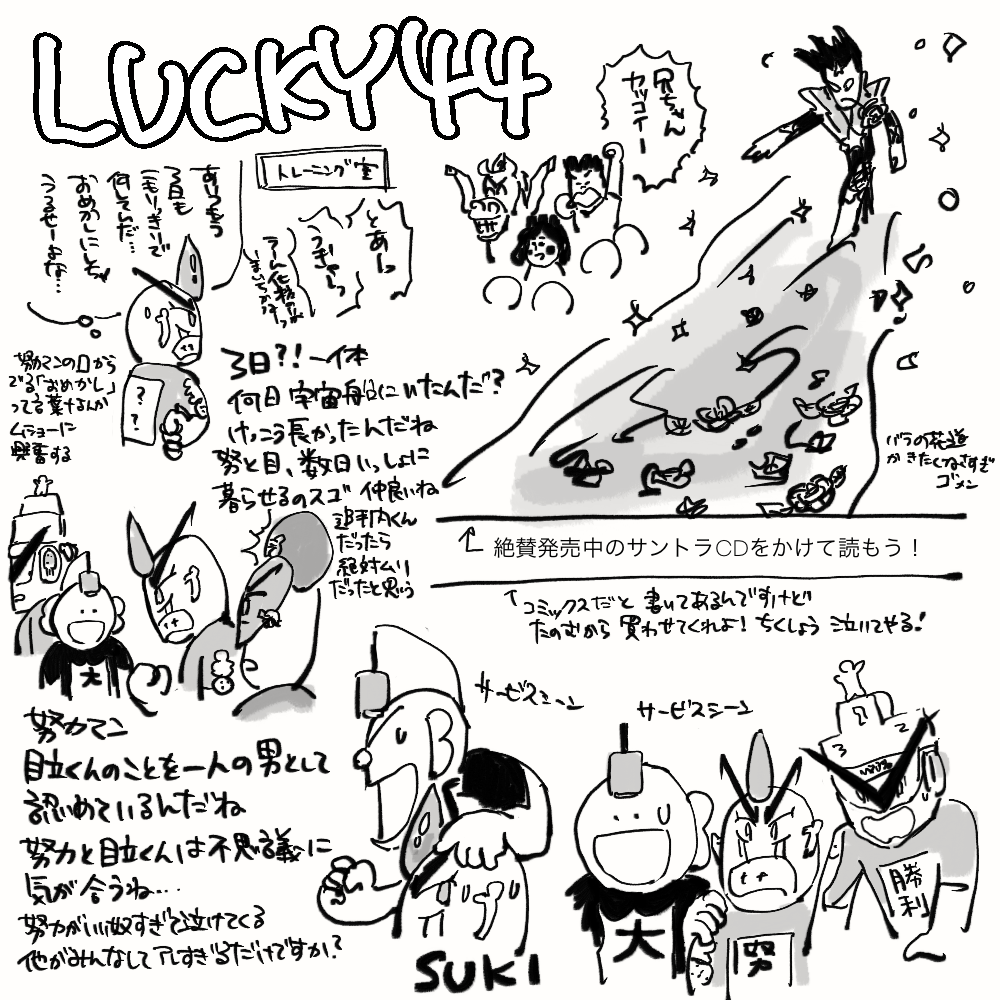 LUCKY44
兄ちゃん
カッコイー
トレーニング室
あいつもう
3日も
こもりっきりで
何してんだ…
おめかしにしちゃ
うるせーよな…
とあーっ
うぎゃーっ
努力マンの口から
でる「おめかし」
って言葉なんか
ムショーに
興奮する
？
？
3日?!一体
何日宇宙船にいたんだ?
けっこう長かったんだね
努と目、数日いっしょに
暮らせるのスゴ 仲良いね
追手内くん
だったら
絶対ムリ
だったと思う
バラの花道
かきたくなさすぎ
ゴメン
絶賛発売中のサントラCDをかけて読もう！
コミックスだと書いてあるんですけど
たのむから買わせてくれよ!ちくしょう泣いてやる!
大
努力マン
目立くんのことを一人の男として
認めているんだね
努力と目立くんは不思議に
気が合うね…
努力がいい奴すぎて泣けてくる
他がみんなしてアレすぎるだけですか?
サービスシーン
SUKI
サービスシーン
大
努
1
2
3
勝利